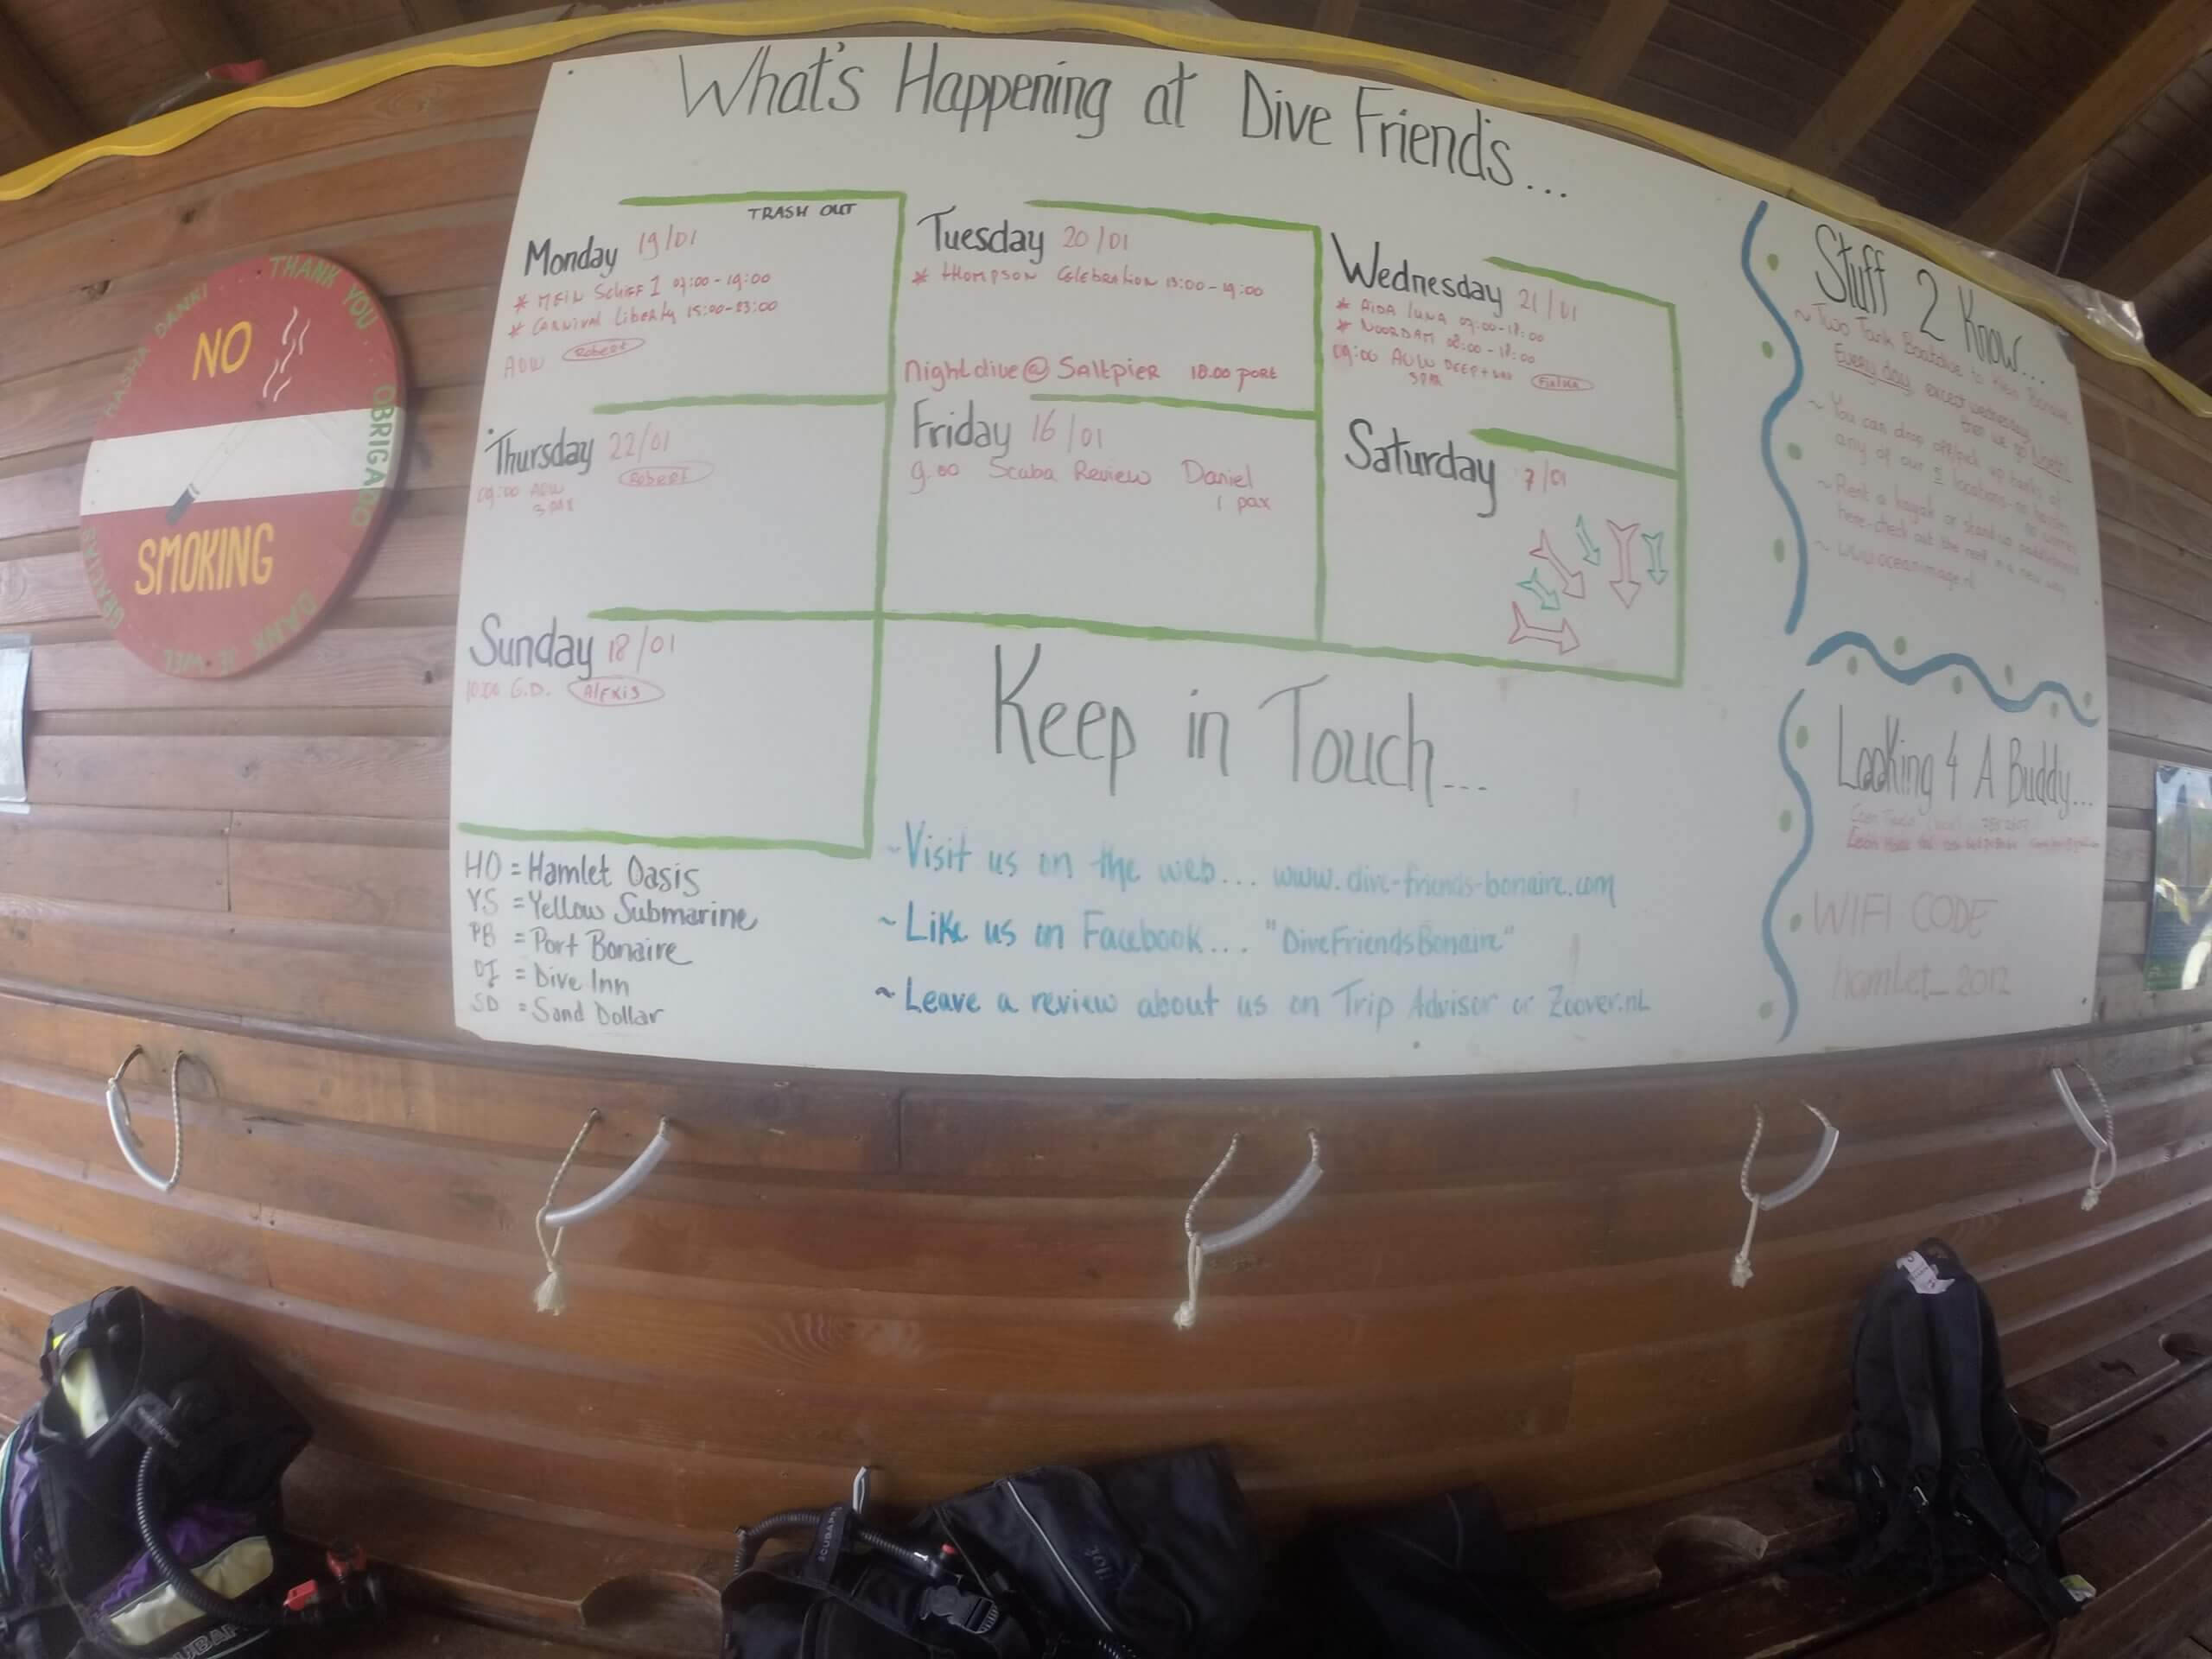 What's Happening at Dive Friends...
TRASH OUT
Monday 19/01
* MEIN Schiff 1 07:00-19:00
* Carnival Liberty 15:00-23:00
AOW Robert
Tuesday 20/01
* Thompson Celebration 13:00-19:00
Nightdive @ Saltpier 18.00 port
Wednesday 21/01
* AIDA luna 09:00-18:00
* Noordam 08:00-18:00
09:00 AOW DEEP +
Thursday 22/01
09:00 AOW Robert
Friday 16/01
9.00 Scuba Review Daniel
1 pax
Saturday 7/01
Sunday 18/01
10:00 G.D. Alexis
Keep in Touch...
~Visit us on the web... www.dive-friends-bonaire.com
~Like us on Facebook... "DiveFriendsBonaire"
~Leave a review about us on Trip Advisor or Zoover.nl
HO = Hamlet Oasis
YS = Yellow Submarine
PB = Port Bonaire
DI = Dive Inn
SD = Sand Dollar
Stuff 2 Know...
~Two Tank Boatdive to Klein Bonaire
Every day, except wednesday,
then we go North!
~ You can drop off/pick up tanks at
any of our 5 locations- no hassles,
no worries
~Rent a kayak or stand-up paddleboard
here-check out the reef in a new way
~ www.oceanimage.nl
Looking 4 A Buddy...
WIFI CODE
hamlet_2012
NO
SMOKING
THANK YOU
OBRIGADO
DANK JE WEL
GRACIAS
MASHA DANKI
SCUBAPR
Pilot
SUBAP